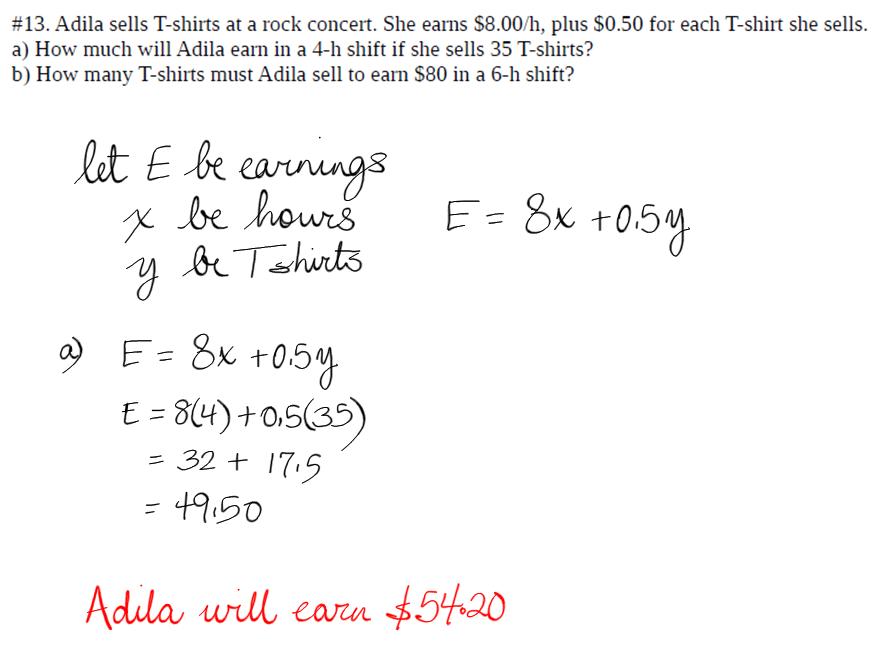 #13. Adila sells T-shirts at a rock concert. She earns $8.00/h, plus $0.50 for each T-shirt she sells.
a) How much will Adila earn in a 4-h shift if she sells 35 T-shirts?
b) How many T-shirts must Adila sell to earn $80 in a 6-h shift?
let E be earnings
x be hours
E = 8x + 0.5y
y be Tshirts
a) E = 8x + 0.5y
E = 8(4) + 0.5(35)
= 32 + 17.5
= 49.50
Adila will earn $54.20